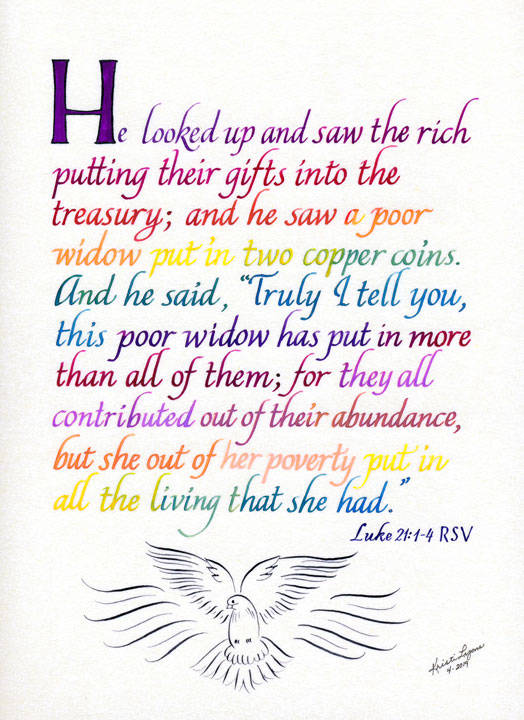 He looked up and saw the rich
putting their gifts into the
treasury; and he saw a poor
widow put in two copper coins.
And he said, “Truly I tell you,
this poor widow has put in more
than all of them; for they all
contributed out of their abundance,
but she out of her poverty put in
all the living that she had.”
Luke 21:1-4 RSV
Kristi
4-2014